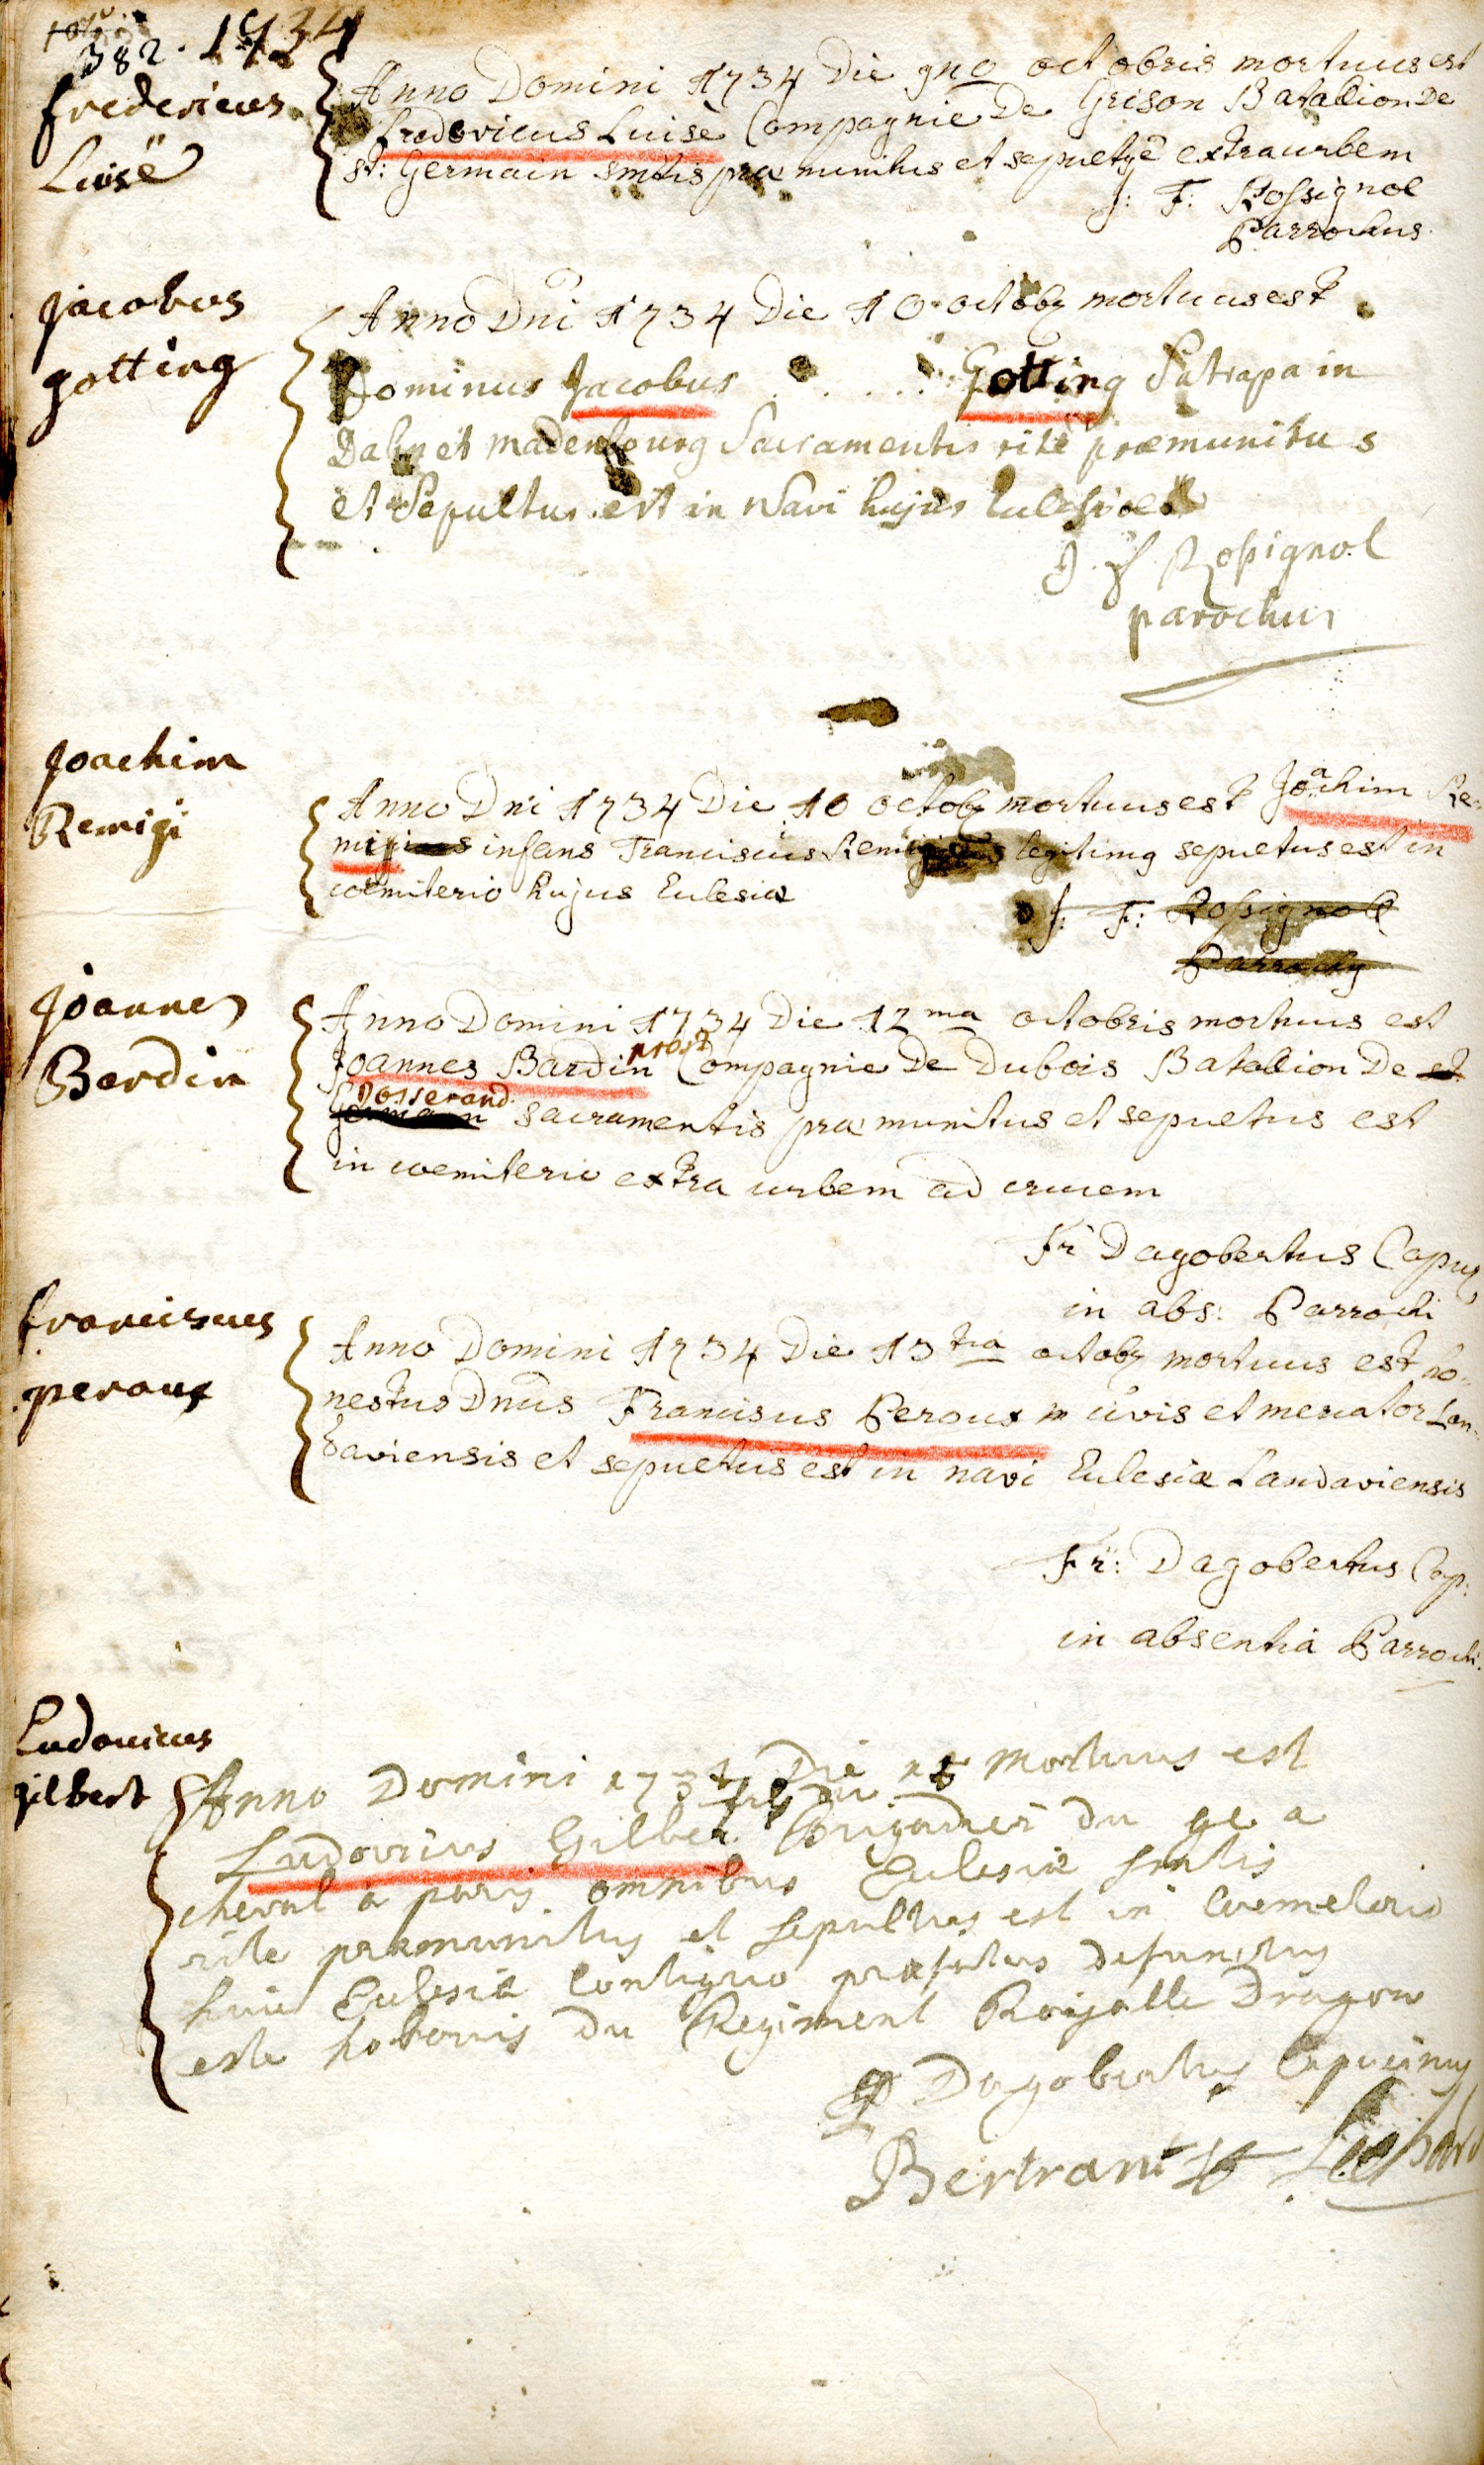 382. 1734
fredericus
Luisë
Anno Domini 1734 Die 9no octobris mortuus est
fredericus Luisë Compagnie De Grison Batallion De
st: Germain smtis præmunitus et sepultus extra urbem
J: F: Rossignol
Parrochus.
jacobus
gotting
Anno Dni 1734 Die 10 octob mortuus est
Dominus Jacobus . . . . . Gotting Satrapa in
Dahn et madenbourg Sacramentis rite præmunitus
et Sepultus est in Navi hujus Eclesiæ
J. F. Rossignol
parochus
Joachim
Remigi
Anno Dni 1734 Die 10 octob mortuus est Joachim Re-
migi infans Franciscus Remigi legitimg sepultus est in
coemiterio hujus Eclesiæ
J: F: Rossignol
Parrochg
Joannes
Bardin
Anno Domini 1734 Die 12ma octobris mortuus est
Joannes Bardin Compagnie De Dubois Batallion De st
Josserand
Germain sacramentis præmunitus et sepultus est
in coemiterio extra urbem ad crucem
Fr Dagobertus Capuc
in abs: Parrochi
franciscus
peroux
Anno Domini 1734 Die 13tia octob mortuus est ho-
nestus Dnus Franciscus Peroux civis et mercator Lan-
daviensis et sepultus est in navi Eclesiæ Landaviensis
Fr: Dagobertus Cap:
in absentia Parrochi.
Ludovicus
gilbert
Anno Domini 1734 Die mortuus est
Ludovicus Gilber Brigadier du a
cheval a pary omnibus Eclesiæ smtis
rite præmunitus et sepultus est in Coemeterio
huic Eclesiæ Contiguo præfatus defunctus
este du Regiment Roijalle Dragon
P Dagobertus Capucinus
Bertrant